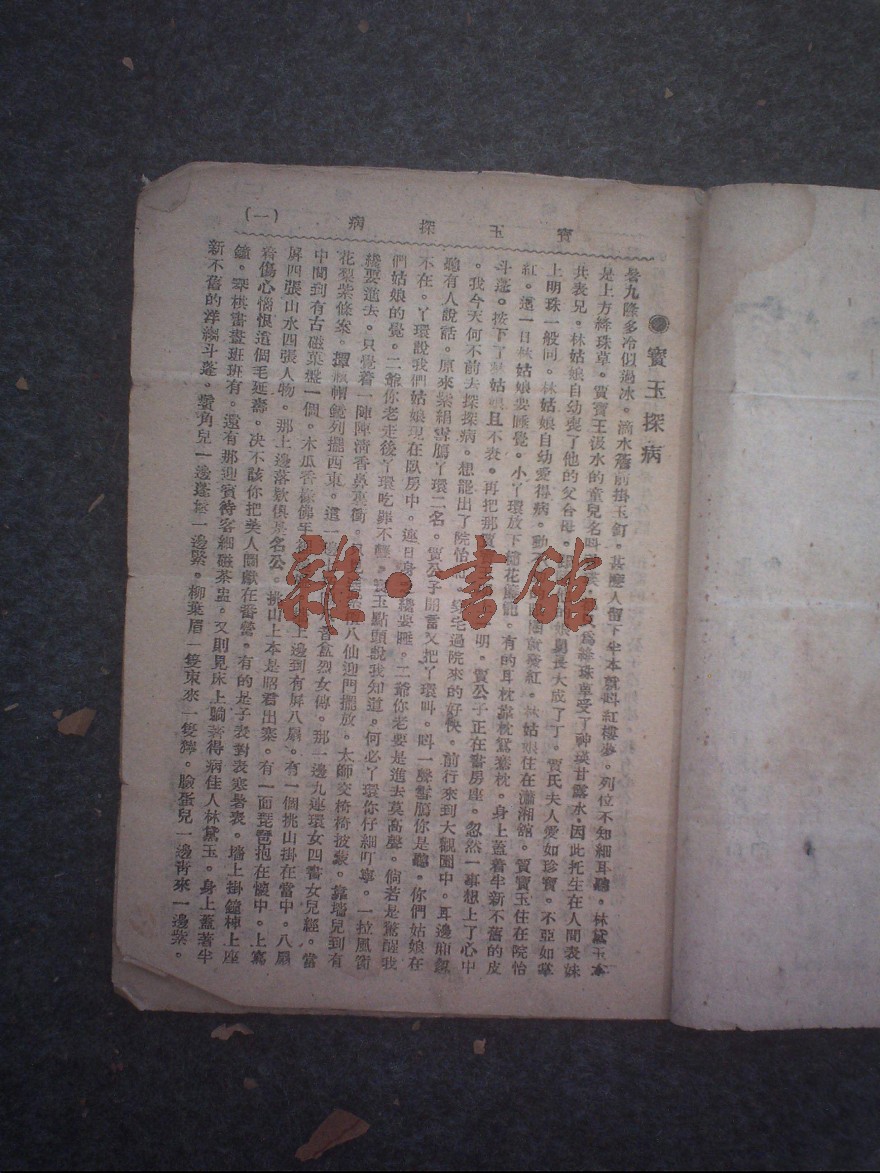 寶玉探病 (一)
寶玉探病
暑九隆冬冷似過冰。滴水簷前掛玉釘。甚麼人留下半本就叫紅樓夢。列位不知細耳聽。林黛玉本
是上方絳珠草。賈寶玉汲水的童兒名叫神瑛。絳珠草受了神瑛甘露水。因此托生在人間表妹
共表兄。林姑娘自幼喪了他的父合母。長大成了丁。賈氏夫人愛如珍寶。不亞如掌
上明珠一般同。林姑娘自幼愛得病。紅。林姑娘住在瀟湘館。賈寶玉住在院怡
紅。這一日林姑娘要睡覺。小丫環放下。有的耳枕靠枕鴛鴦枕。身上蓋着半新不舊的皮
斗蓬。按下了林姑娘且不表。再把那賈明。賈公子正在書房座。忽然一事想上了心中
。我今天何不前去探探病。想罷出了院怡過院來的好快。前行來到大觀園中。耳邊廂
聽有人說話。原來紫絹雪鴈丫環二名。賈公子開言又把丫環叫。叫一聲雪鴈你是聽。你們姑娘在
不在。丫環說我們姑娘現在臥房中。邇日身纔要睡。二爺你老要是進去莫高聲。倘若是驚醒我
們姑娘的覺。二爺你老走後丫環吃罪不輕。寶玉點頭說我知道。何必丫環你仔細叮嚀。一拉風門
纔要進去。只覺着一陣陣清香鼻裏衝。八仙迎門擺放。太師交椅椅披蒙。靠墻兒到有
花梨紫條案。撢瓶帽筒列擺西東。這一邊盒烈女傳。那一邊九連環女四書女兒經。當
中間到有古磁菓盤一個。木瓜香櫞佛手上邊到有屏八扇。有一個挑山掛在當中。八扇
屏四張山水四張人物。那上邊落欵俱是名公。挑山上本是昭君出塞。有一面琵琶抱在懷中。上寫
着傷心惱恨這個毛延壽。决不該你把美人圖獻在番營。有的是子表對表寒暑表。墻上掛鐘棹上座
鐘。琴棋書畫班班有。還有那迎賓待客細磁茶盅。又則見床上躺着得病佳人林黛玉。身上蓋著半
新不舊的洋縐斗蓬。鬢角兒一邊蓬鬆一邊緊。柳葉眉一隻東來一隻。臉蛋兒一邊靑來一邊紫。
雜·書館